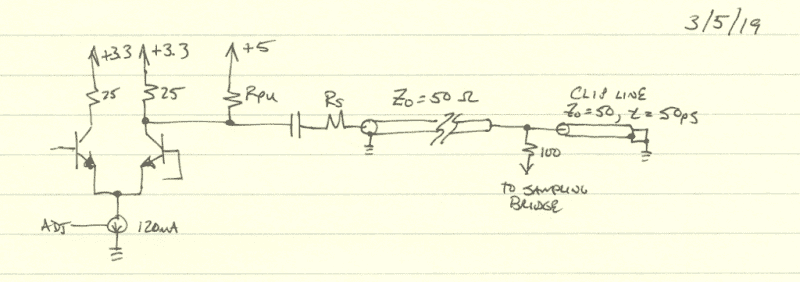 3/5/19
+3.3 +3.3 +5
25 25 Rpu
Rs Z₀=50 Ω
CLIP LINE
Z₀=50, t=50ps
100
TO SAMPLING
BRIDGE
ADJ 120mA